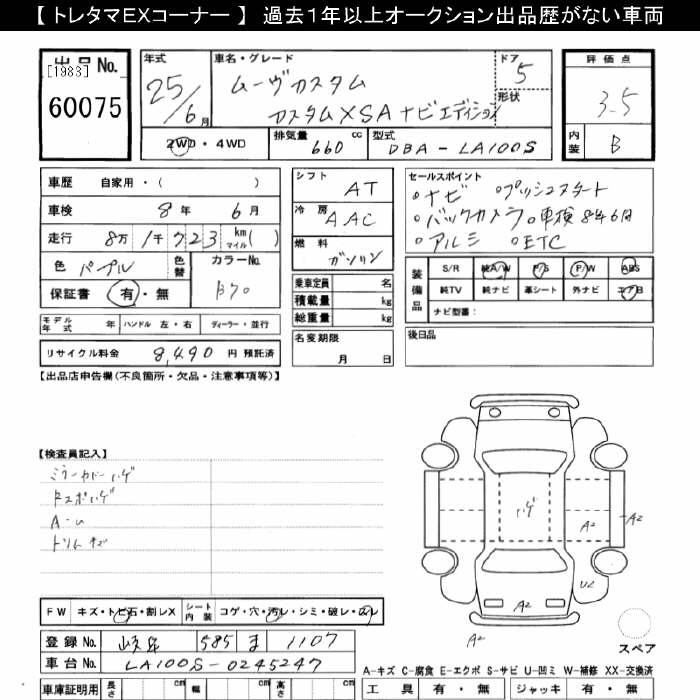 【トレタマEXコーナー】 過去1年以上オークション出品歴がない車両
出品No.
[1983]
60075
年式
25/6月
車名・グレード
ムーヴカスタム
カスタムXSAナビエディション
ドア
5
形状
評価点
3.5
内装
B
2WD・4WD
排気量 660 cc
型式 DBA-LA100S
車歴 自家用・( )
車検 8年 6月
走行 8万1千723 km マイル( )
色 パープル
色替
カラーNo.
保証書 有・無
シフト AT
冷房 AAC
燃料 ガソリン
乗車定員 名
積載量 kg
総重量 kg
セールスポイント
ナビ プッシュスタート
バックカメラ 車検8年6月
アルミ ETC
装備品
S/R 純A/W P/S P/W ABS
純TV 純ナビ 革シート 外ナビ エアB
ナビ型番:
モデル年式 年 ハンドル 左・右 ディーラー・並行
リサイクル料金 8,490 円 預託済
名変期限
月 日
後日品
【出品店申告欄(不良箇所・欠品・注意事項等)】
【検査員記入】
ミラーカバーハゲ
ドスポハゲ
A-ム
トリムキズ
ハゲ
A2
A2
U2
A2
A2
FW キズ・トビ石・割レX
シート内装 コゲ・穴・汚レ・シミ・破レ・スレ
登録No. 岐阜 585 ま 1107
車台No. LA100S-0245247
スペア
A-キズ C-腐食 E-エクボ S-サビ U-凹ミ W-補修 XX-交換済
車庫証明用 長さ cm 幅 cm 高さ cm
工具 有・無 ジャッキ 有・無